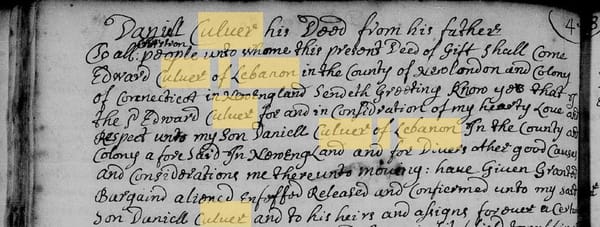 Daniell Culver his Deed from his father
To all Christian people unto whome this present Deed of Gift Shall Come
Edward Culver of Lebanon in the County of New london and Colony
of Connecticot in Newengland Sendeth Greeting Know yee that I
the sd Edward Culver for and in Consideration of my hearty Love and
Respect unto my Son Daniell Culver of Lebanon In the County and
Colony afore Said In NewengLand and for Divers other good Causes
and Considerations me there unto moveing: have Given Granted
Bargaind aliened Enfeffed Released and Confirmed unto my said
Son Daniell Culver and to his heirs and assigns forever a Certain